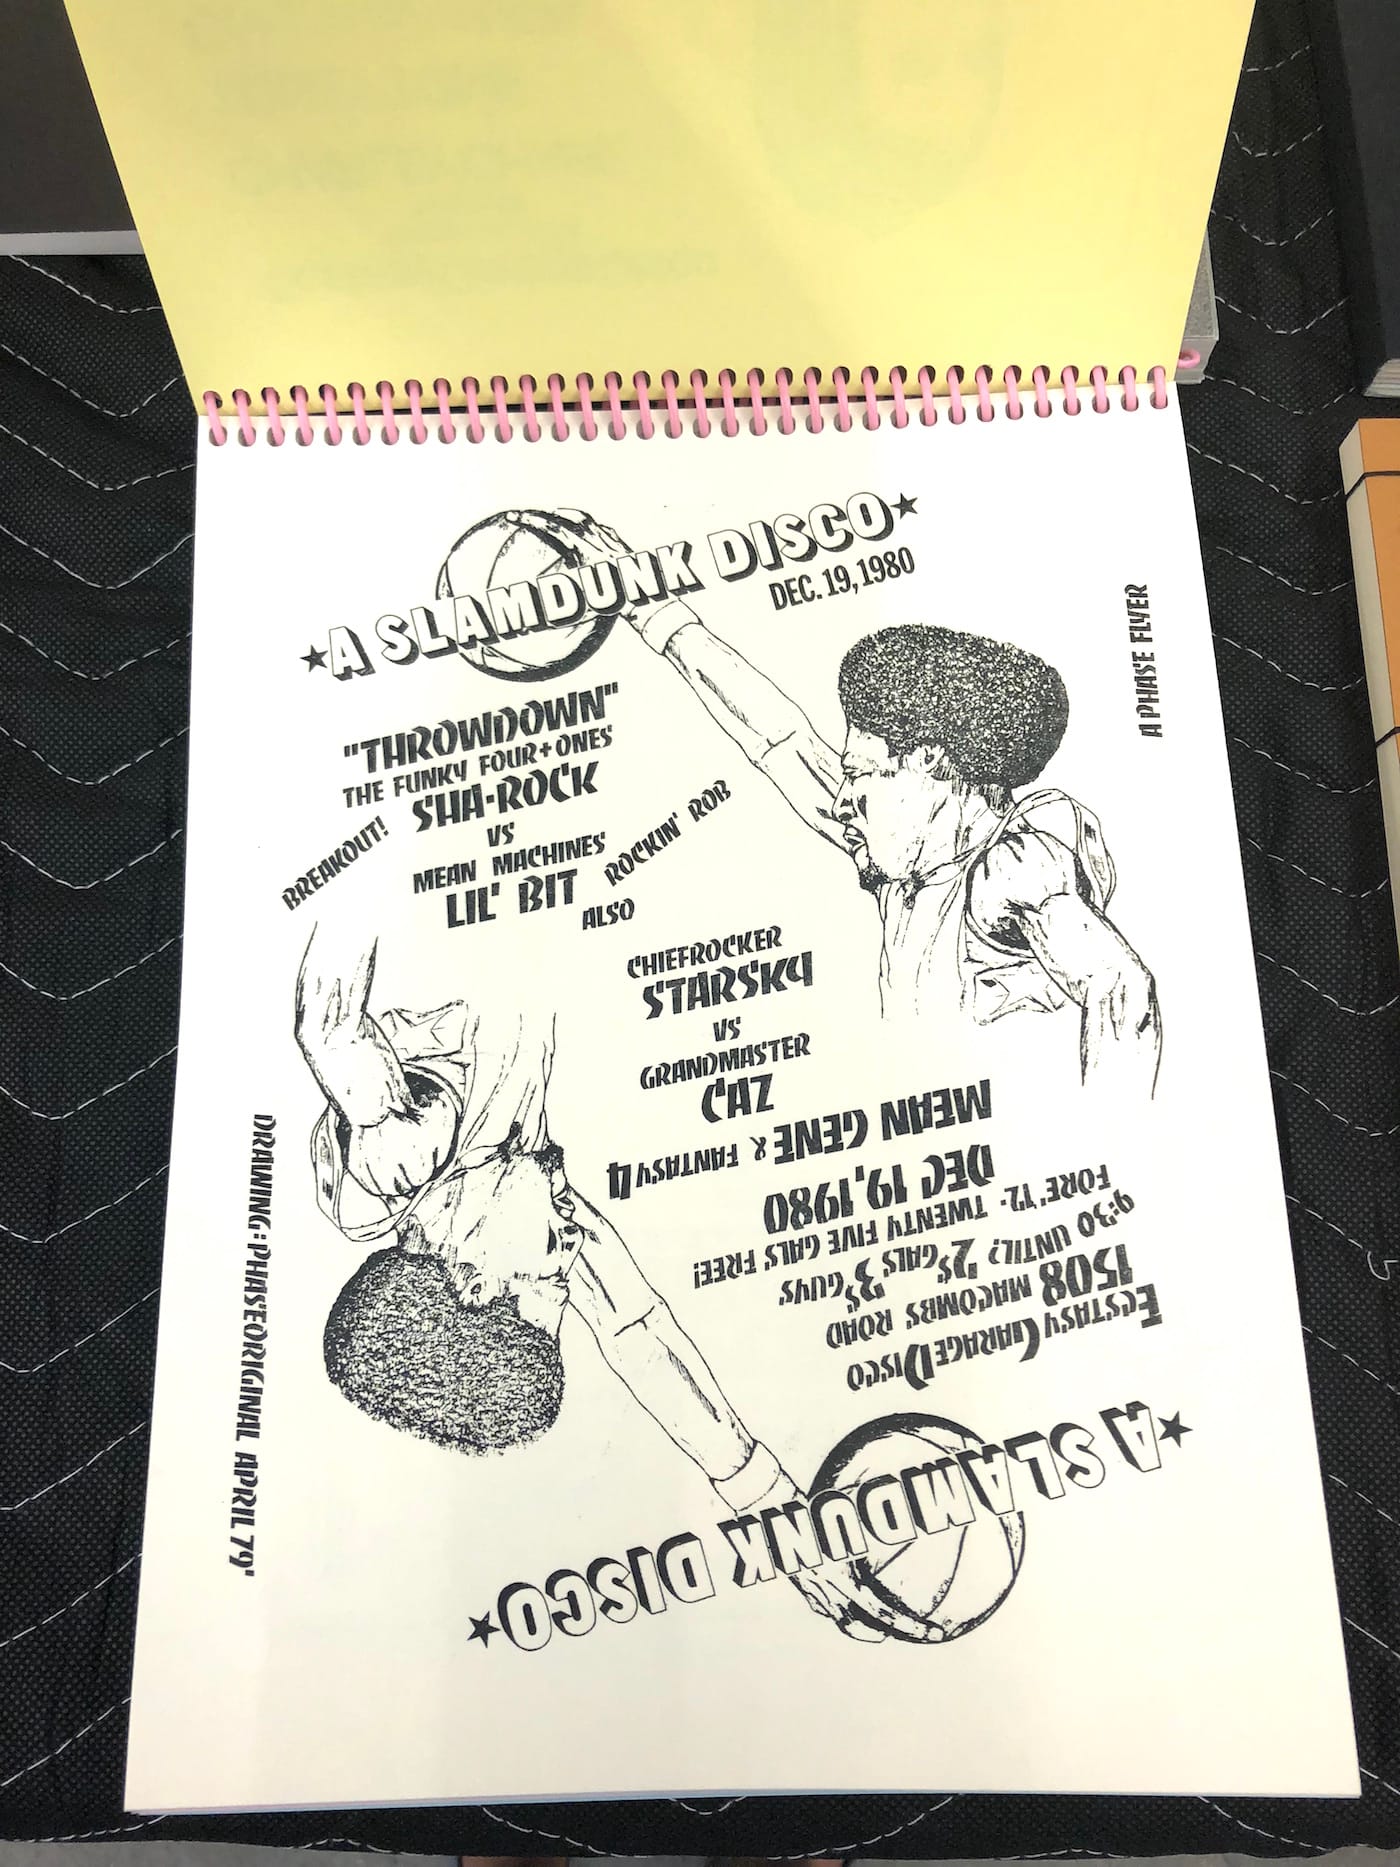 ★A SLAMDUNK DISCO★
DEC. 19, 1980
"THROWDOWN"
THE FUNKY FOUR + ONES'
SHA-ROCK
BREAKOUT!
VS
MEAN MACHINES'
LIL' BIT
ROCKIN' ROB
ALSO
CHIEFROCKER
STARSKY
VS
GRANDMASTER
CAZ
A PHASE FLYER
DRAWING: PHASEORIGINAL APRIL 79'
★A SLAMDUNK DISCO★
ECSTASY GARAGE DISCO
1508 MACOMBS ROAD
9:30 UNTIL? 2$ GALS 3$ GUYS
FORE' 12. TWENTY FIVE GALS FREE!
DEC 19, 1980
MEAN GENE & FANTASY 4